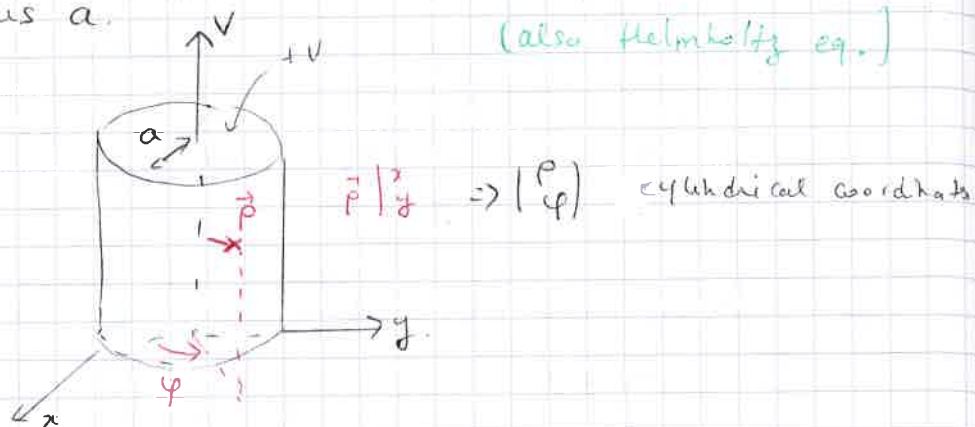 us a.
V
(also Helmholtz eq.)
+V
a
ρ⃗ | x y => | ρ φ) cylindrical coordinats
ρ⃗
y.
φ
x